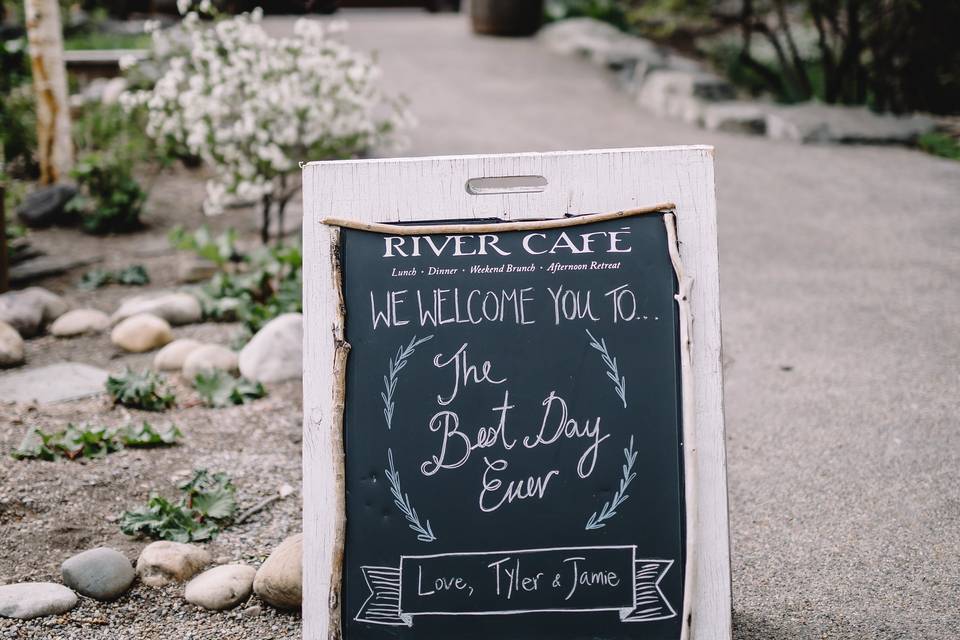 RIVER CAFÉ
Lunch · Dinner · Weekend Brunch · Afternoon Retreat
WE WELCOME YOU TO...
The
Best Day
Ever
Love, Tyler & Jamie